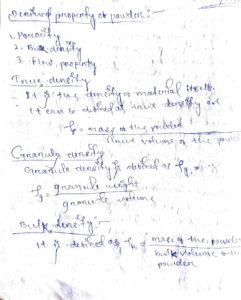 Derived property of powder :-
1. Porosity
2. Bulk density
3. Flow property
True density
It is the density of material itself.
It can be defined as true density as
= mass of the powder
True volume of the powd
Granule density
Granule density is defined as
= granule weight
granule volume
Bulk density :-
It is defined as = mass of the powder
bulk volume of the
powder